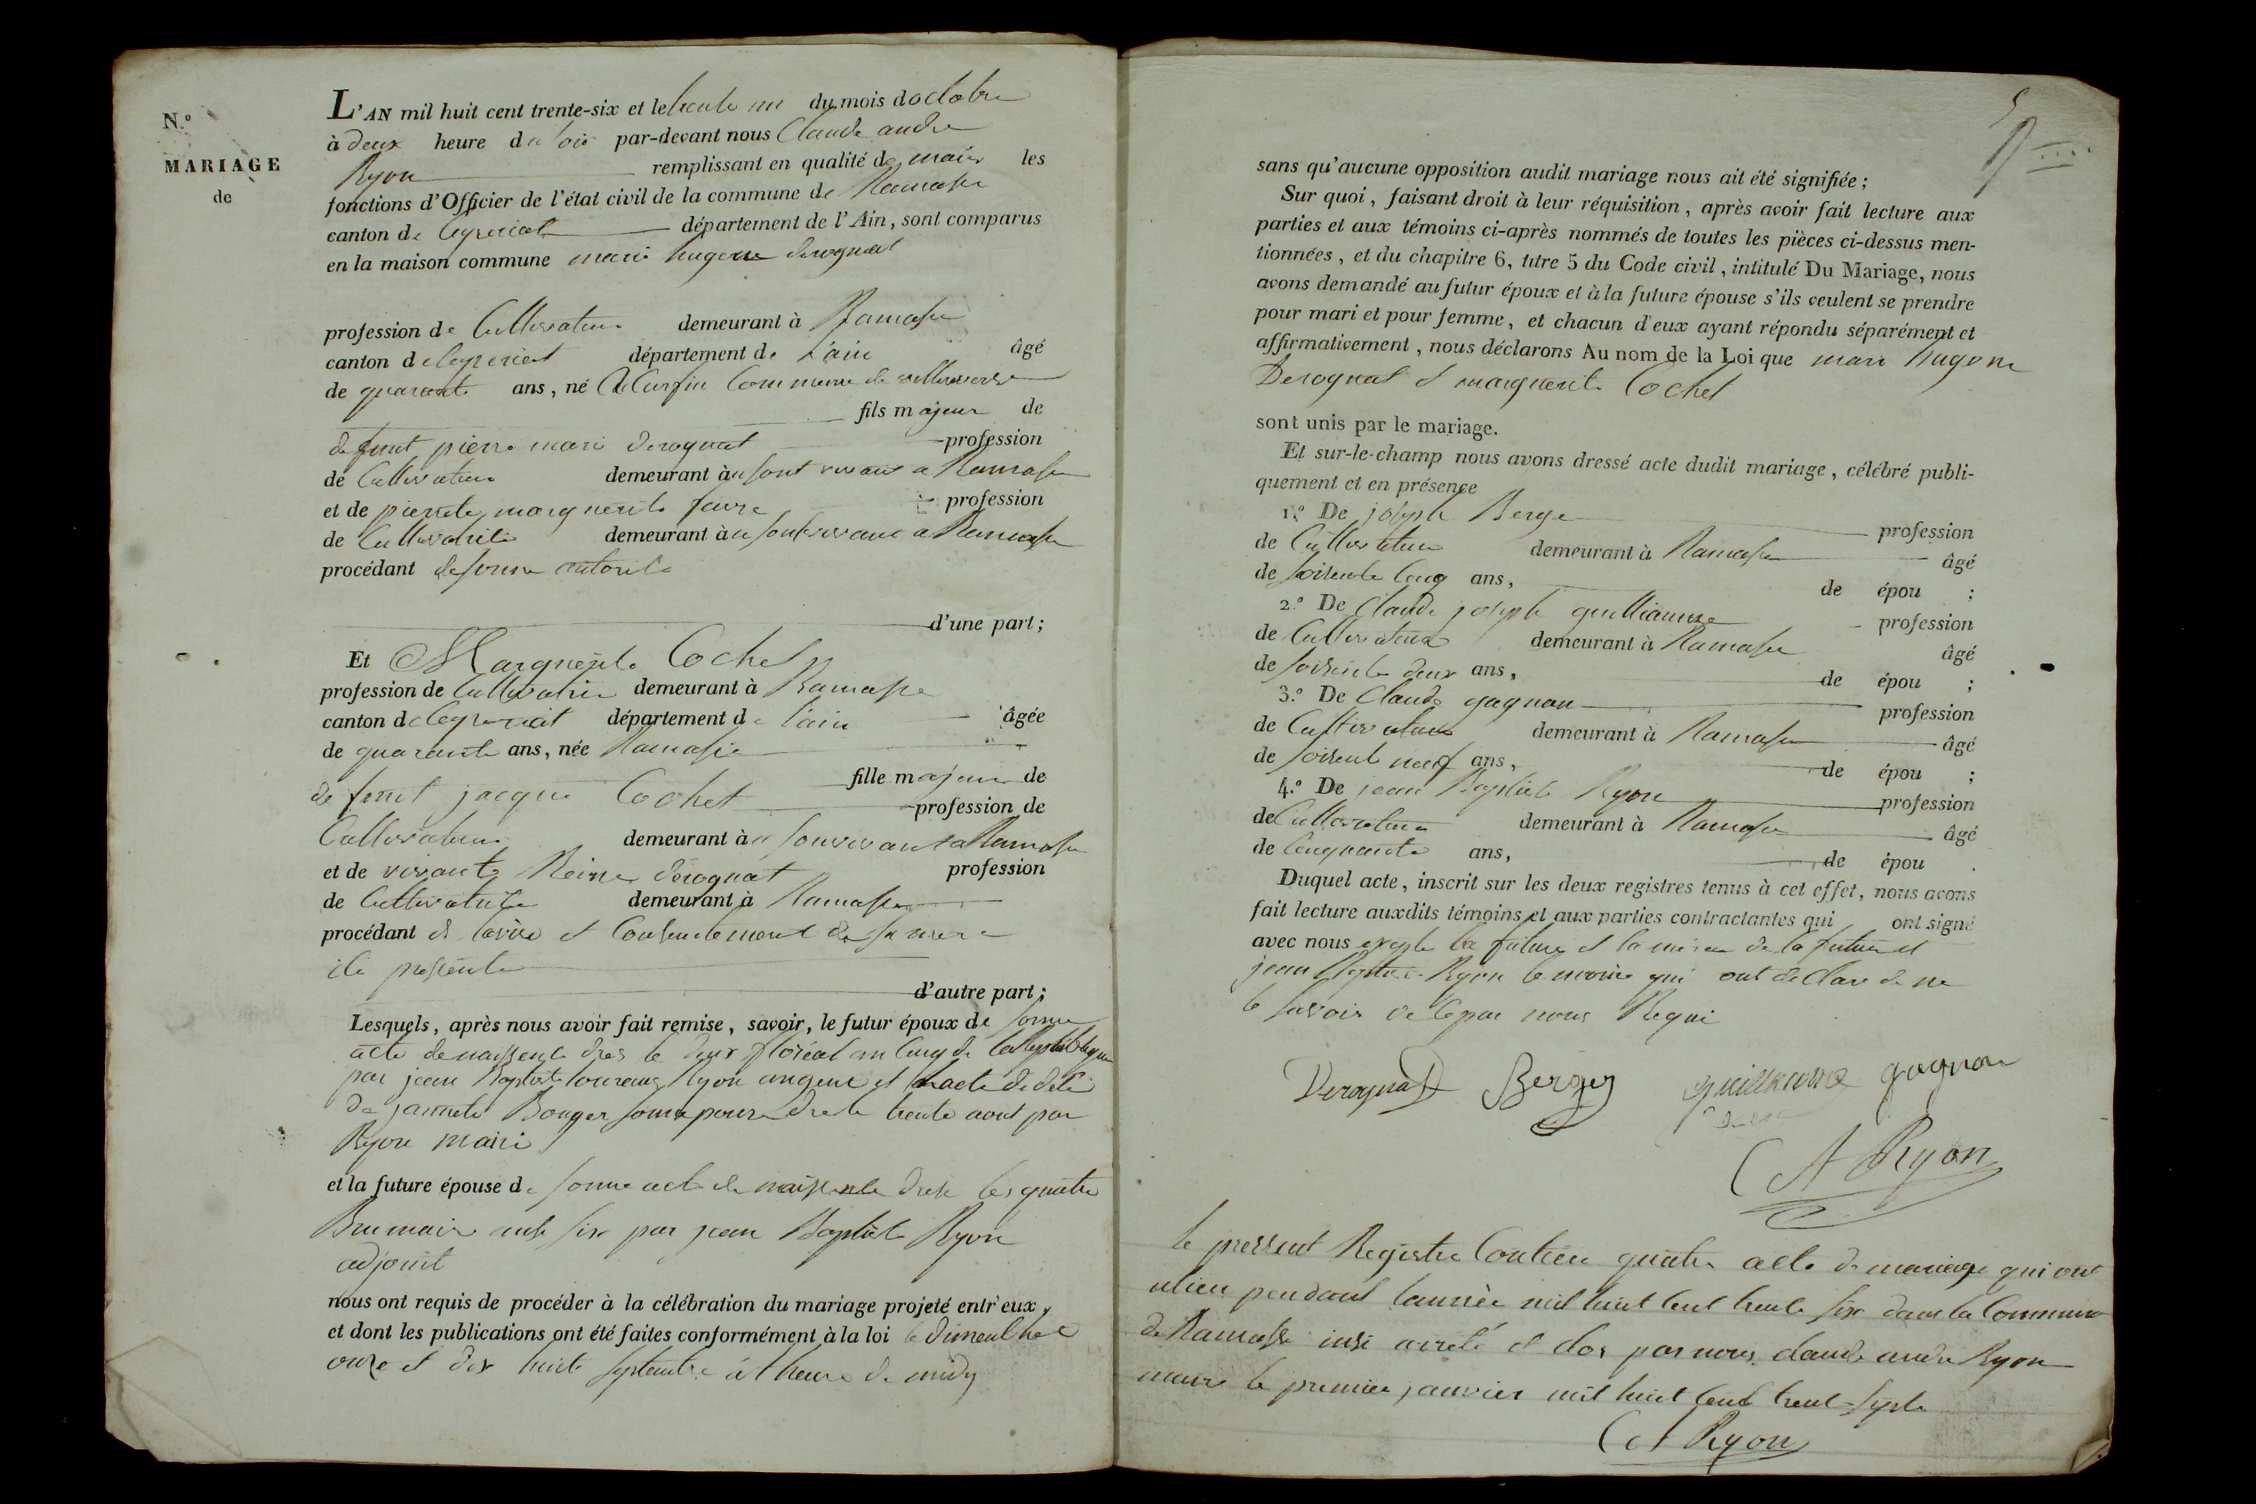 N.º
MARIAGE
de
L'AN mil huit cent trente-six et le trente un du mois doctobre
à deux heure du soir par-devant nous Claude andre
Ryon remplissant en qualité de maire les
fonctions d'Officier de l'état civil de la commune de Ramasse
canton de Ceyzeriat département de l'Ain, sont comparus
en la maison commune marie hugene derognat
profession de Cultivateur demeurant à Ramasse
canton de Ceyzeriat département de l'ain âgé
de quarante ans, né Commune de villereversure
fils majeur de
defunt pierre marie derognat profession
de Cultivateur demeurant à Ramasse
et de pierrette marguerite favre profession
de Cultivatrice demeurant à Ramasse
procédant
d'une part;
Et Marguerite Cochet
profession de Cultivatrice demeurant à Ramasse
canton de Ceyzeriat département de l'ain âgée
de quarante ans, née Ramasse
fille majeure de
defunt jacque Cochet profession de
Cultivateur demeurant à Ramasse
et de vivante Reine derognat profession
de Cultivatrice demeurant à Ramasse
procédant de lavis et Consentement de sa mere
ile presente
d'autre part;
Lesquels, après nous avoir fait remise, savoir, le futur époux de sonne
acte de naissence dres le deux floréal an cinq de la Republique
par jean Baptiste Ryon et acte de
de Bouger dres le trente aout par
Ryon maire
et la future épouse de sonne acte de naissence dresse les quatre
Brumaire six par jean Baptiste Ryon
adjoint
nous ont requis de procéder à la célébration du mariage projeté entr'eux,
et dont les publications ont été faites conformément à la loi le dimenche
onze et dix huite septembre á heure de midy
5
sans qu'aucune opposition audit mariage nous ait été signifiée;
Sur quoi, faisant droit à leur réquisition, après avoir fait lecture aux
parties et aux témoins ci-après nommés de toutes les pièces ci-dessus men-
tionnées, et du chapitre 6, titre 5 du Code civil, intitulé Du Mariage, nous
avons demandé au futur époux et à la future épouse s'ils veulent se prendre
pour mari et pour femme, et chacun d'eux ayant répondu séparément et
affirmativement, nous déclarons Au nom de la Loi que marie hugene
Derognat et marguerite Cochet
sont unis par le mariage.
Et sur-le-champ nous avons dressé acte dudit mariage, célébré publi-
quement et en présence
1.º De joseph Berge profession
de Cultivateur demeurant à Ramasse âgé
de soisente Cinq ans, de épou ;
2.º De Claude joseph guillianme profession
de Cultivateur demeurant à Ramasse âgé
de soisente deux ans, de épou ;
3.º De Claude gagnon profession
de Cultivateur demeurant à Ramasse âgé
de soisente neuf ans, de épou ;
4.º De jean Baptiste Ryon profession
de Cultivateur demeurant à Ramasse âgé
de Cinquante ans, de épou .
Duquel acte, inscrit sur les deux registres tenus à cet effet, nous avons
fait lecture auxdits témoins et aux parties contractantes qui ont signé
avec nous exepte la future et la mere de la future et
jean Baptiste Ryon temoin qui ont declare de ne
le savoir de ce par nous Requi
Derognat Berger guillianme gagnon
C A Ryon
le pressent Registre Contien quatre acte de mariage qui ont
ulieu pendant lannée mil huit cent trente six dans la Commune
de Ramasse insi arreté et clos par nous claude andre Ryon
maire le premier janvier mil huit cent trent septe
C A Ryon